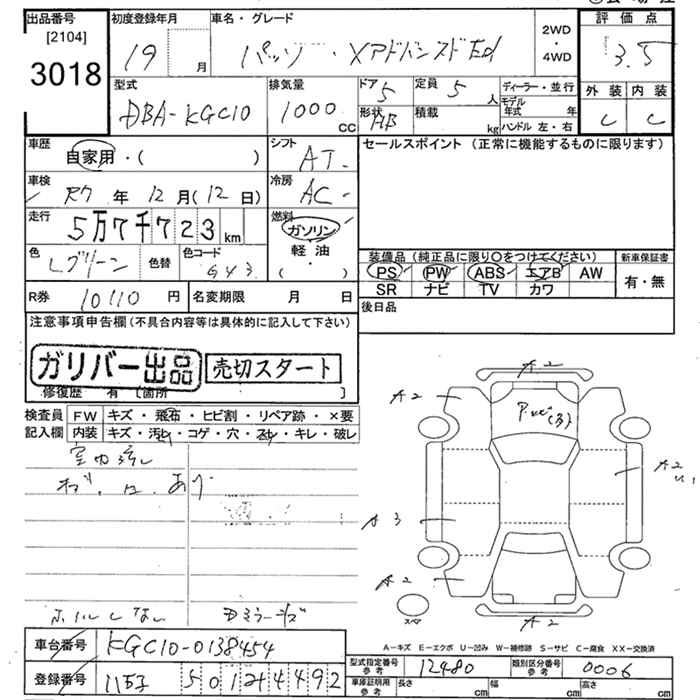 出品番号 初度登録年月 車名・グレード 2WD・4WD 評価点
[2104] 3018 19 月 パッソ・XアドバンスドEd 3.5
型式 排気量 ドア 定員 ディーラー・並行 外装 内装
DBA-KGC10 1000cc 5 5人 モデル年式 年 C C
形状 積載 kg ハンドル 左・右
HB
車歴 シフト セールスポイント (正常に機能するものに限ります)
自家用・( ) AT
車検 冷房
R7年12月(12日) AC
走行 燃料
5万7千723km ガソリン 軽油 ・( )
色 色替 色コード 装備品 (純正品に限り○をつけてください) 新車保証書
Lグリーン G43 PS PW ABS エアB AW 有・無
SR ナビ TV カワ
R券 10110円 名変期限 月 日 後日品
注意事項申告欄 (不具合内容等は具体的に記入して下さい)
ガリバー出品 売切スタート
修復歴 有 [箇所 ]
検査員記入欄 FW キズ・飛布・ヒビ割・リペア跡・×要
内装 キズ・汚レ・コゲ・穴・スレ・キレ・破レ
A2
A2
A2
A3
A2
A2
スペア
A-キズ E-エクボ U-凹み W-補修跡 S-サビ C-腐食 XX-交換済
車台番号 KGC10-0138454
型式指定番号 参考 12480 類別区分番号 参考 0006
登録番号 501 2 4492
車庫証明用 参考 長さ cm 幅 cm 高さ cm